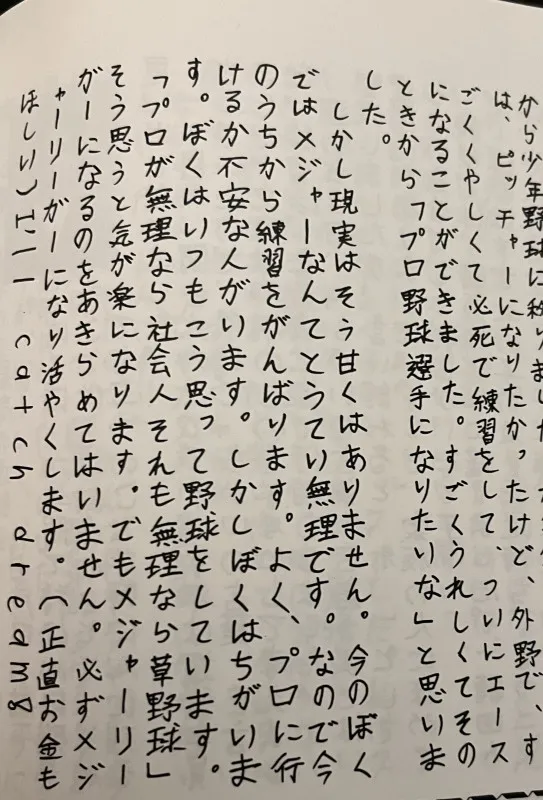 から少年野球に移りました
は、ピッチャーになりたかったけど、外野で、す
ごくくやしくて必死で練習をして、ついにエース
になることができました。すごくうれしくてその
ときから「プロ野球選手になりたいな」と思いま
した。
しかし現実はそう甘くはありません。今のぼく
ではメジャーなんてとうてい無理です。なので今
のうちから練習をがんばります。よく、プロに行
けるか不安な人がいます。しかしぼくはちがいま
す。ぼくはいつもこう思って野球をしています。
「プロが無理なら社会人それも無理なら草野球」
そう思うと気が楽になります。でもメジャーリー
ガーになるのをあきらめてはいません。必ずメジ
ャーリーガーになり活やくします。(正直お金も
ほしい)I'll catch dreams